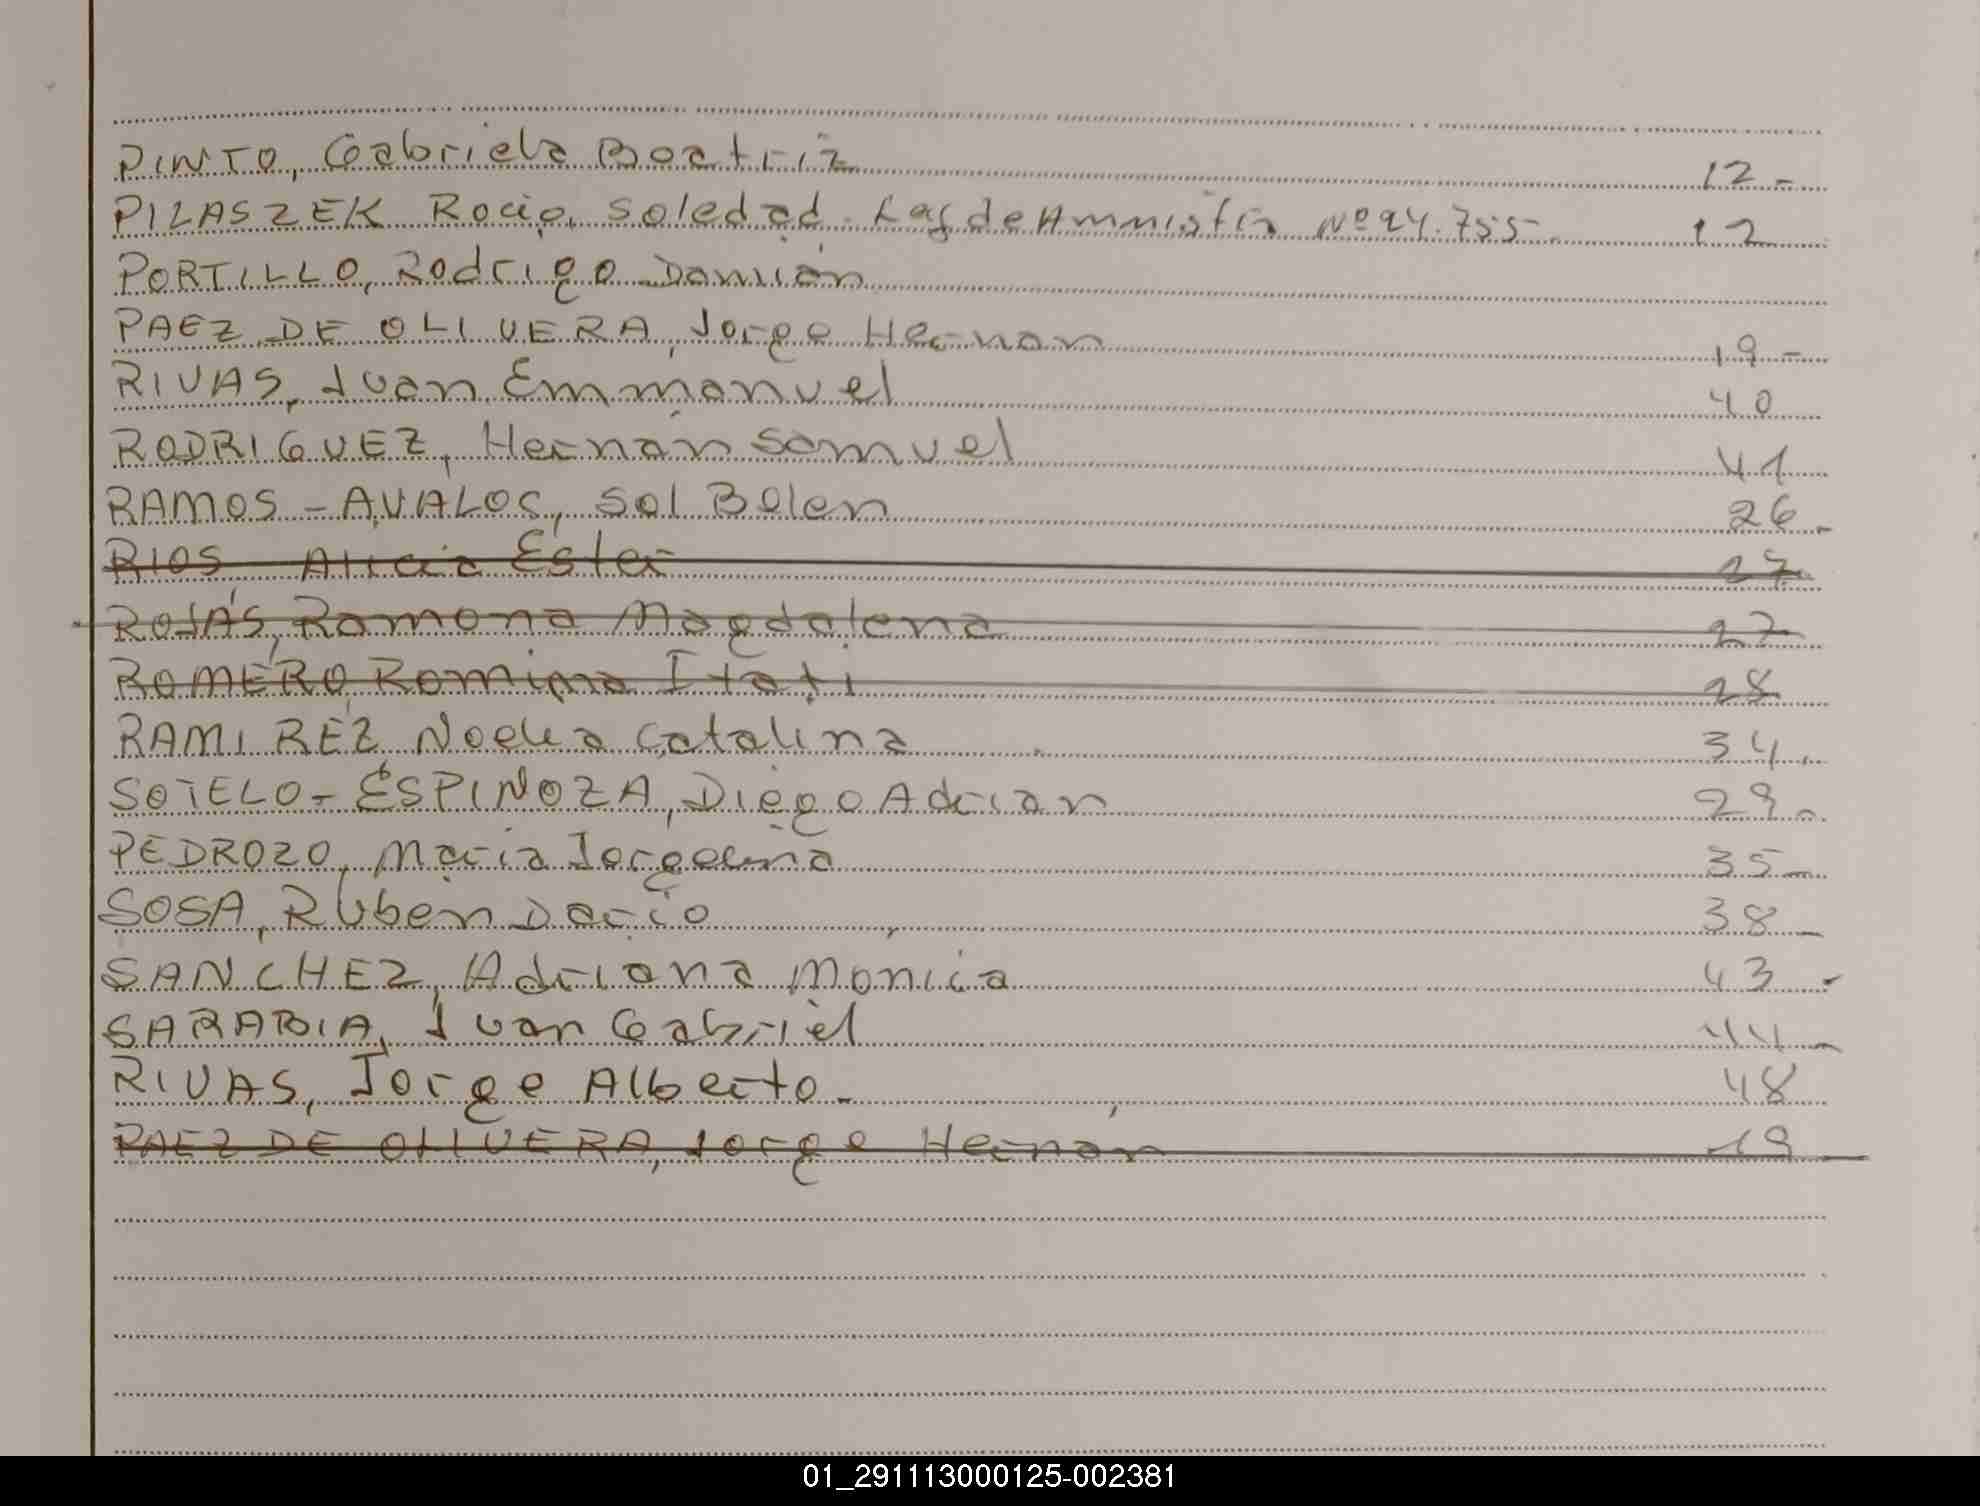 PINTO, Gabriela Beatriz 12-
PILASZEK Rocio, Soledad. Ley de Amnistia Nº 24.755. 12
PORTILLO, Rodrigo Damián
PAEZ DE OLIVERA, Jorge Hernan 19-
RIVAS, Juan Emmanuel 40
RODRIGUEZ, Hernán Samuel 41
RAMOS - AVALOS, Sol Belen 26-
RIOS Alicia Ester 27
ROJAS, Ramona Magdalena 27
ROMERO, Romina Itati 28
RAMIREZ Noelia Catalina 34.
SOTELO - ESPINOZA, Diego Adrian 29-
PEDROZO, Maria Jorgelina 35-
SOSA, Rubén Dario 38-
SANCHEZ, Adriana Monica 43-
SARABIA, Juan Gabriel 44-
RIVAS, Jorge Alberto- 48
PAEZ DE OLIVERA, Jorge Hernán 19
01_291113000125-002381